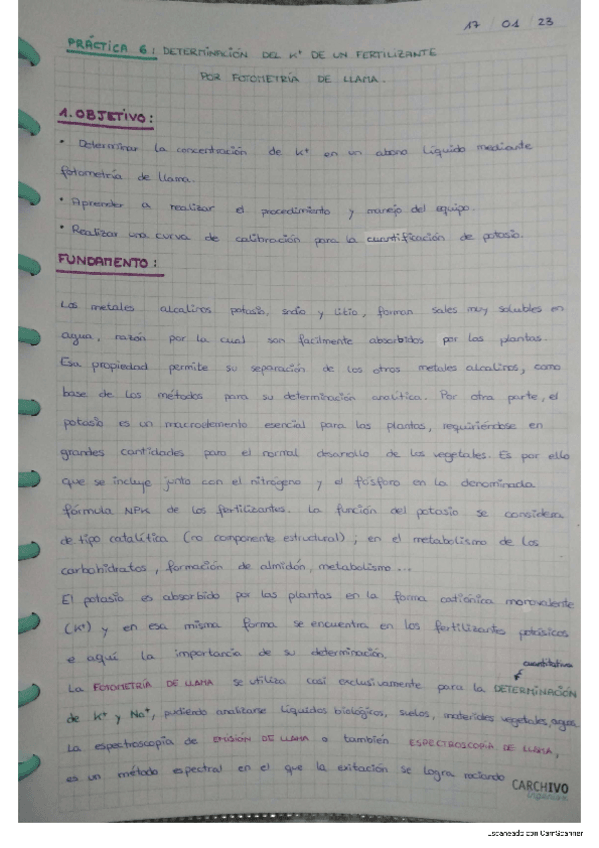 17 / 01 / 23
PRÁCTICA 6: DETERMINACIÓN DEL K⁺ DE UN FERTILIZANTE
POR FOTOMETRÍA DE LLAMA.
1. OBJETIVO:
• Determinar la concentración de K⁺ en un abono líquido mediante
fotometría de llama.
• Aprender a realizar el procedimiento y manejo del equipo.
• Realizar una curva de calibración para la cuantificación de potasio.
FUNDAMENTO:
Los metales alcalinos potasio, sodio y litio, forman sales muy solubles en
agua, razón por la cual son facilmente absorbidos por las plantas.
Esa propiedad permite su separación de los otros metales alcalinos, como
base de los métodos para su determinación analítica. Por otra parte, el
potasio es un macroelemento esencial para las plantas, requiriéndose en
grandes cantidades para el normal desarrollo de los vegetales. Es por ello
que se incluye junto con el nitrógeno y el fósforo en la denominada
fórmula NPK de los fertilizantes. La función del potasio se considera
de tipo catalítica (no componente estructural); en el metabolismo de los
carbohidratos, formación de almidón, metabolismo...
El potasio es absorbido por las plantas en la forma catiónica monovalente
(K⁺) y en esa misma forma se encuentra en los fertilizantes potásicos
e aquí la importancia de su determinación.
cuantitativa
La FOTOMETRÍA DE LLAMA se utiliza casi exclusivamente para la DETERMINACIÓN
de K⁺ y Na⁺, pudiendo analizarse líquidos biológicos, suelos, materiales vegetales, agua.
La espectroscopía de EMISIÓN DE LLAMA o también ESPECTROSCOPÍA DE LLAMA,
es un método espectral en el que la exitación se logra rociando
CARCHIVO
Escaneado con CamScanner